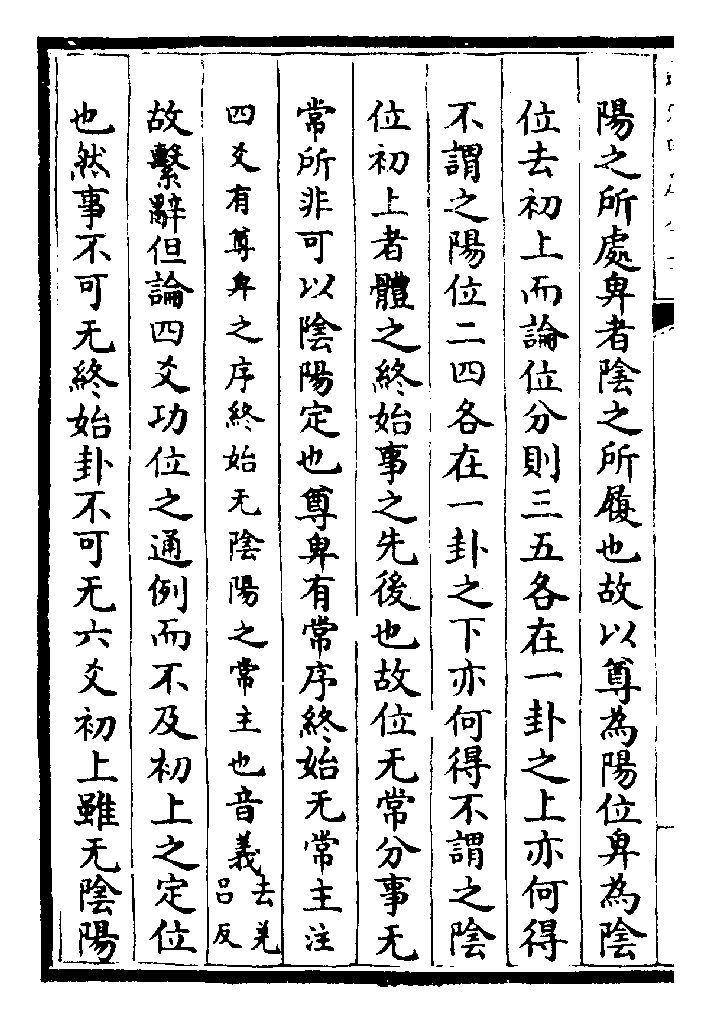 陽之所處卑者陰之所履也故以尊為陽位卑為陰
位去初上而論位分則三五各在一卦之上亦何得
不謂之陽位二四各在一卦之下亦何得不謂之陰
位初上者體之終始事之先後也故位无常分事无
常所非可以陰陽定也尊卑有常序終始无常主注
四爻有尊卑之序終始无陰陽之常主也音義去羌呂反
故繫辭但論四爻功位之通例而不及初上之定位
也然事不可无終始卦不可无六爻初上雖无陰陽